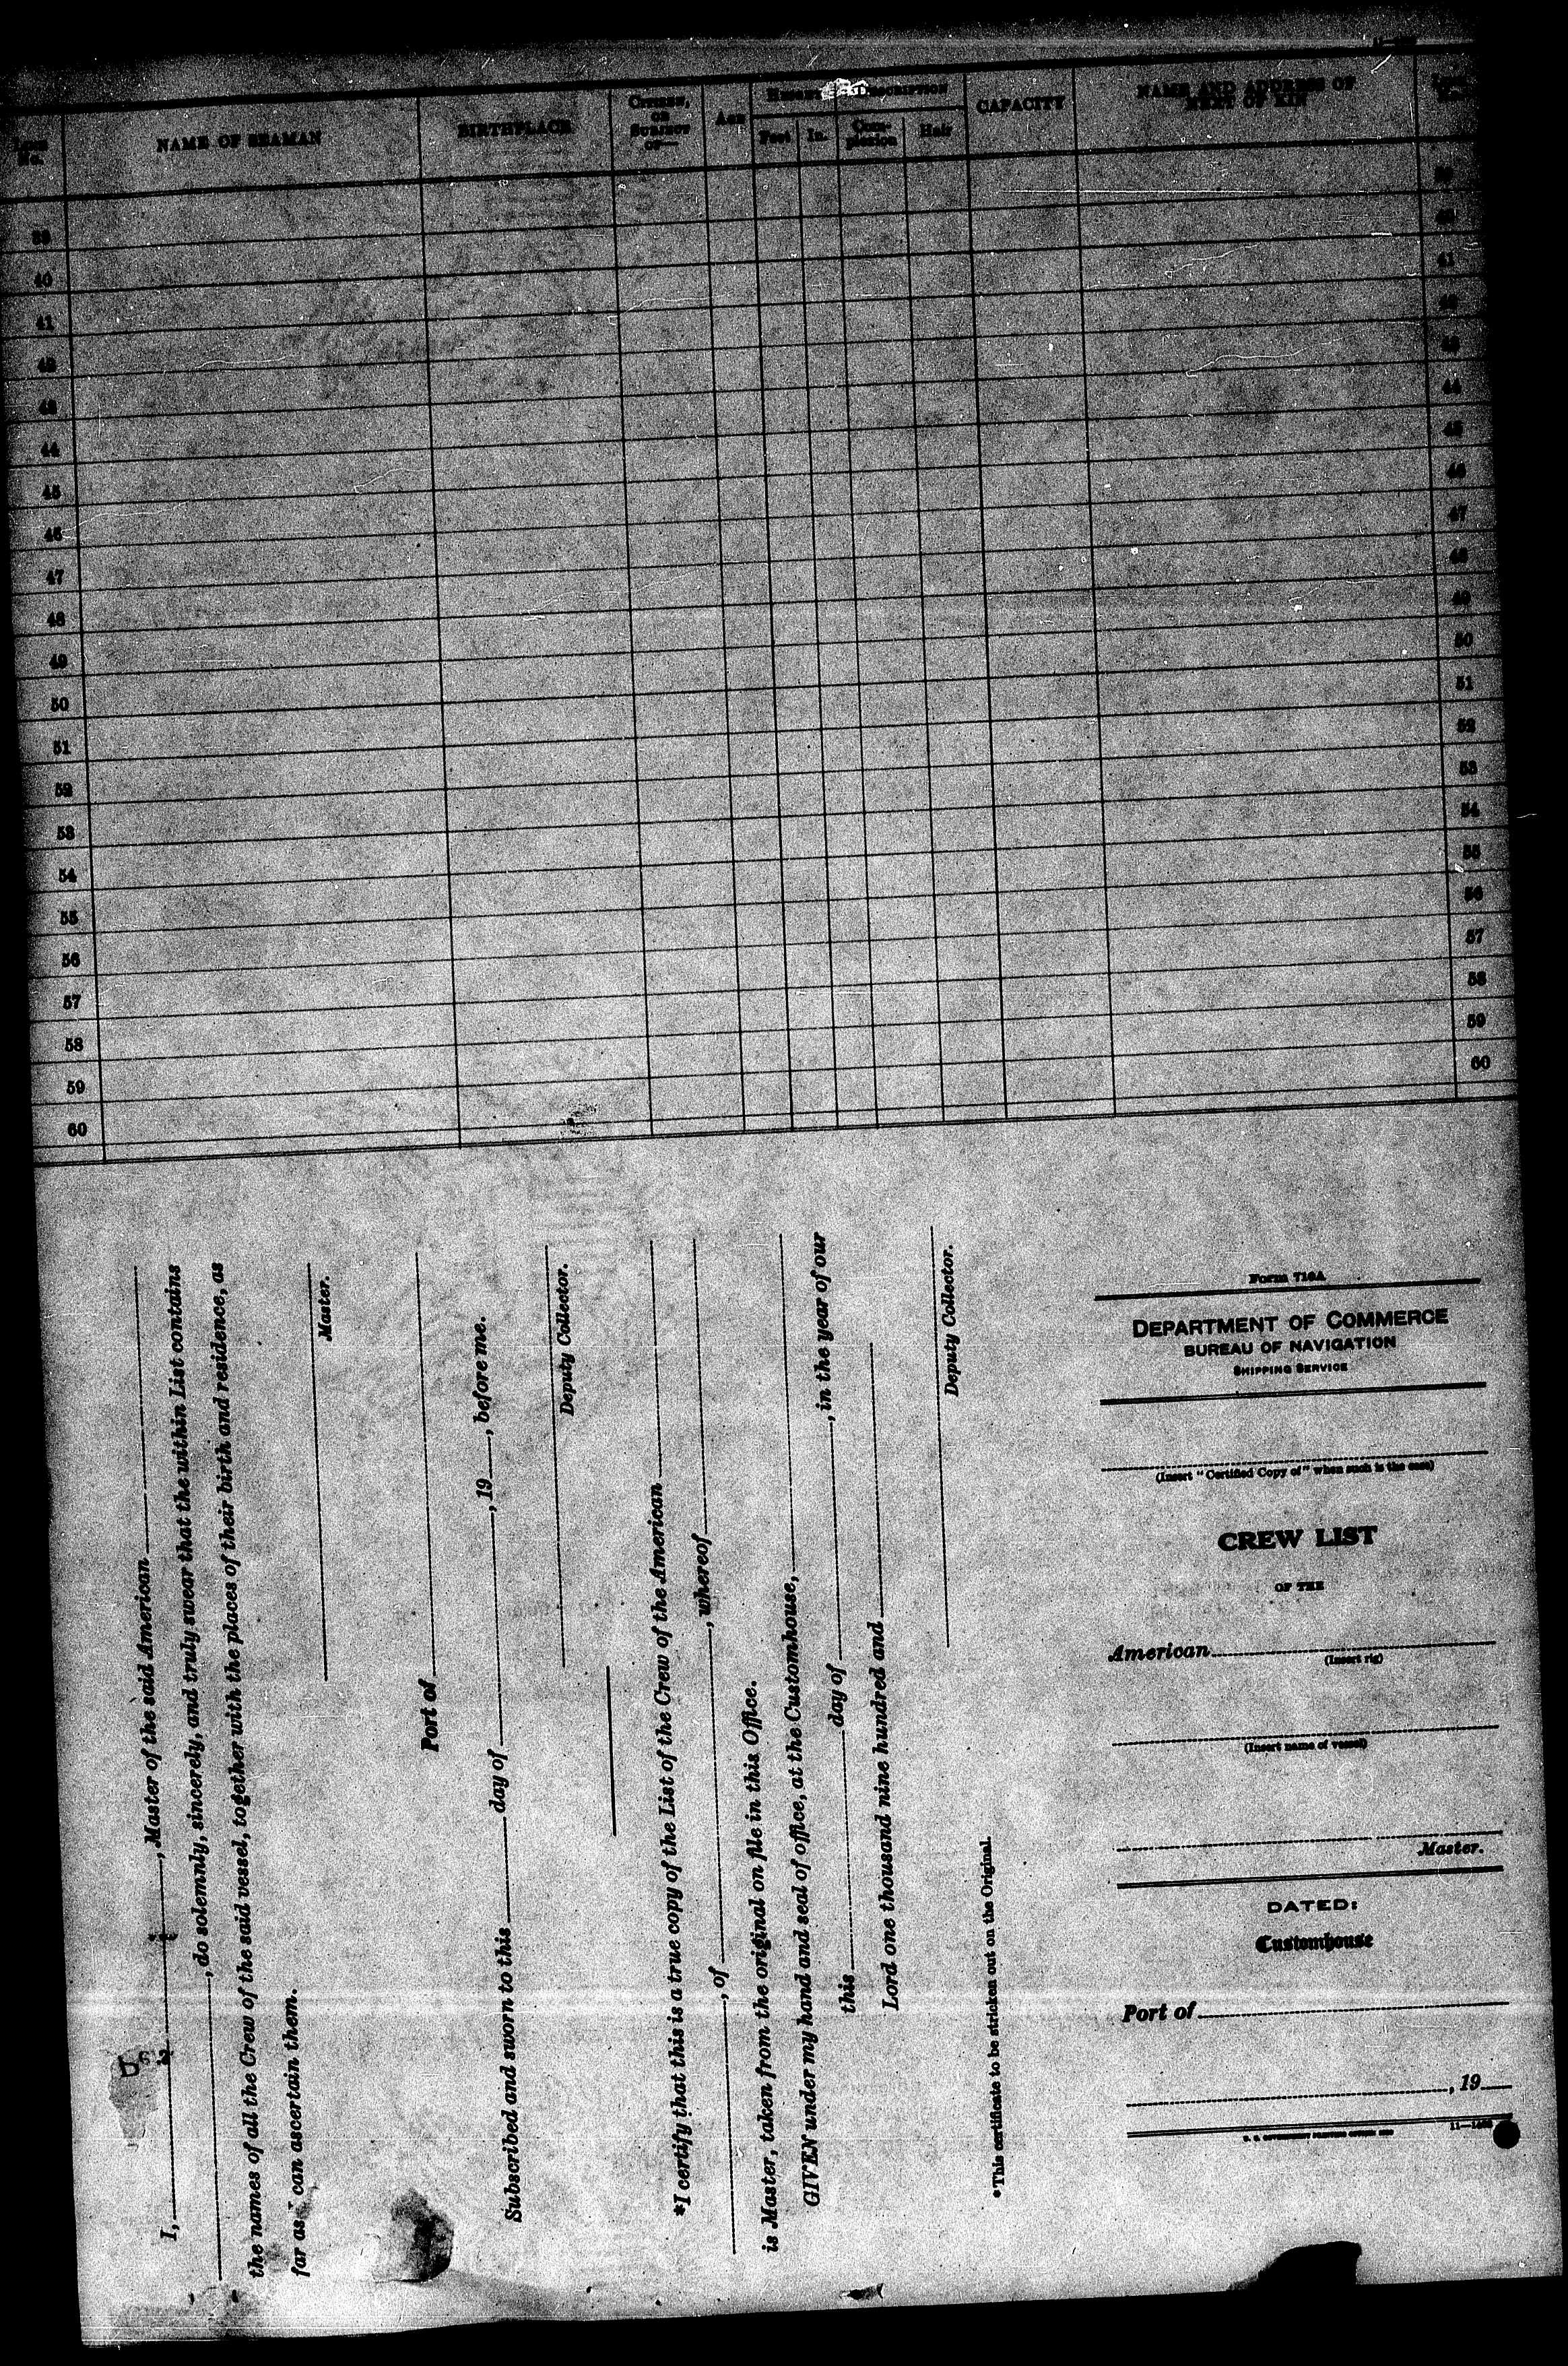 NAME OF SEAMAN
BIRTHPLACE
CITIZEN, OR SUBJECT OF—
AGE
DESCRIPTION
Feet
In.
Complexion
Hair
CAPACITY
NAME AND ADDRESS OF NEXT OF KIN
39
40 40
41 41
42 42
43 43
44 44
45 45
46 46
47 47
48 48
49 49
50 50
51 51
52 52
53 53
54 54
55 55
56 56
57 57
58 58
59 59
60 60
I, , Master of the said American
, do solemnly, sincerely, and truly swear that the within List contains
the names of all the Crew of the said vessel, together with the places of their birth and residence, as
far as can ascertain them.
Master.
Port of
Subscribed and sworn to this day of , 19 , before me.
Deputy Collector.
*I certify that this is a true copy of the List of the Crew of the American
, of , whereof
is Master, taken from the original on file in this Office.
GIVEN under my hand and seal of office, at the Customhouse,
this day of , in the year of our
Lord one thousand nine hundred and
Deputy Collector.
*This certificate to be stricken out on the Original.
Form 710A
DEPARTMENT OF COMMERCE
BUREAU OF NAVIGATION
SHIPPING SERVICE
(Insert "Certified Copy of" when such is the case)
CREW LIST
OF THE
American
(Insert rig)
(Insert name of vessel)
Master.
DATED:
Customhouse
Port of
, 19